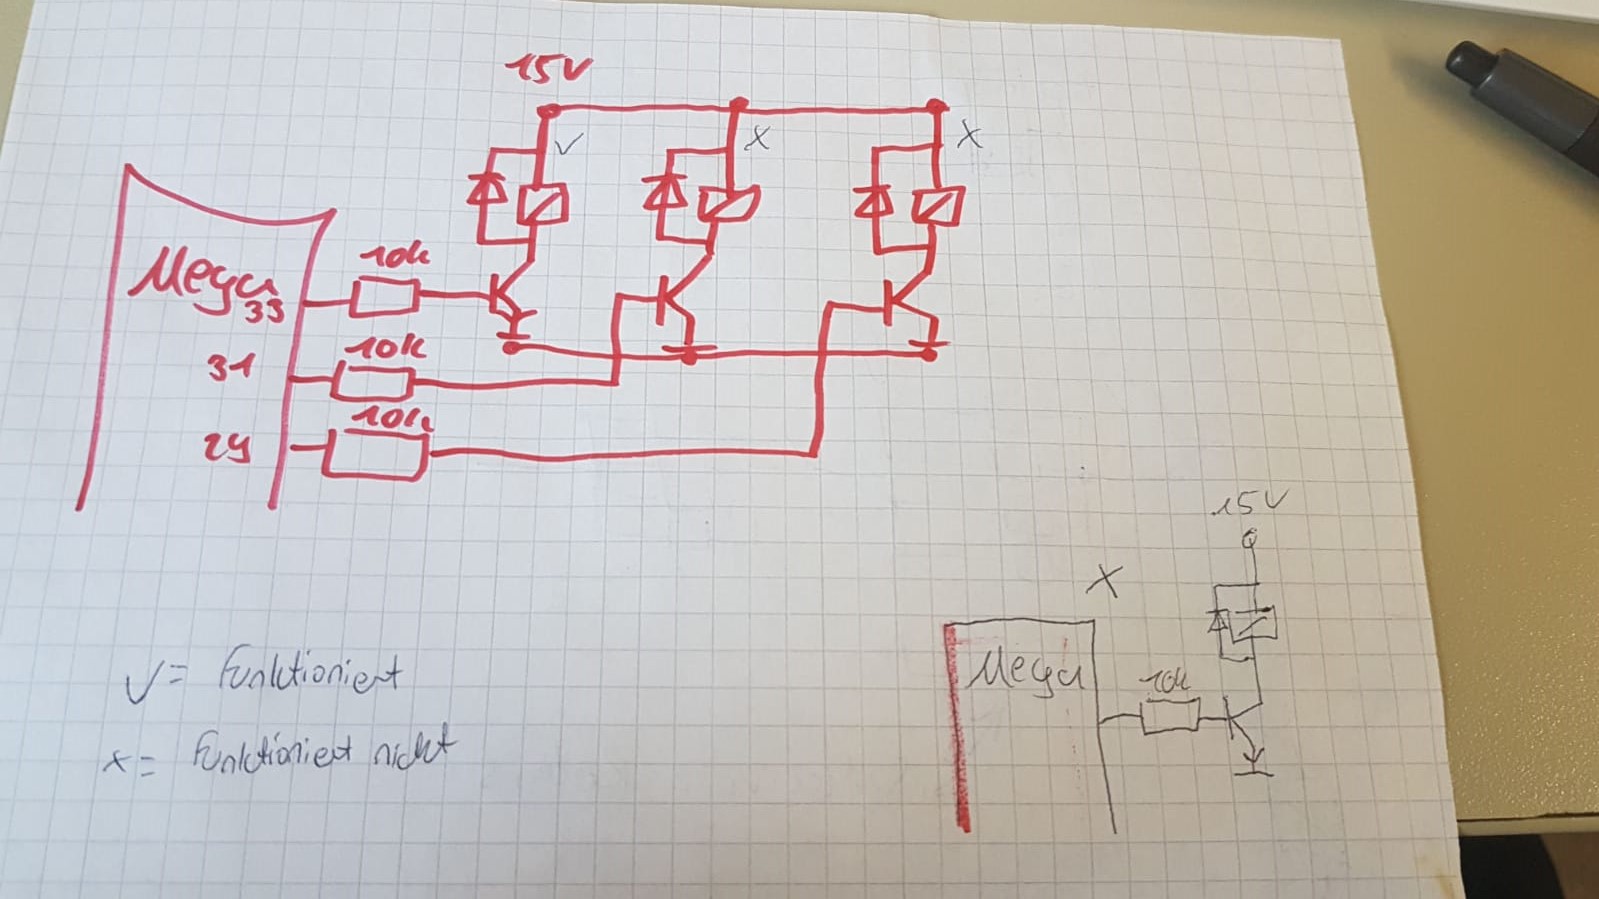 15V
V
X
X
10k
Mega
33
10k
31
10k
29
15V
X
Mega
10k
V = Funktioniert
x = Funktioniert nicht